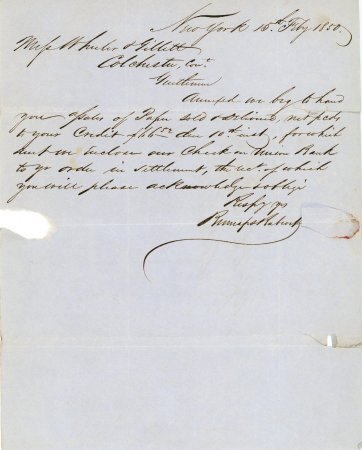 New York 15th Feby 1850.
Mess Wheeler & Gillett
Colchester, Con.
Gentlemen
Annexed we beg to hand
you a/sales of Paper sold & delivered, net pcds
to your Credit due 10th inst, for which
we Enclose our Check on Union Bank
to yr order in settlement, the rec. of which
you will please acknowledge & oblige
Respy yrs